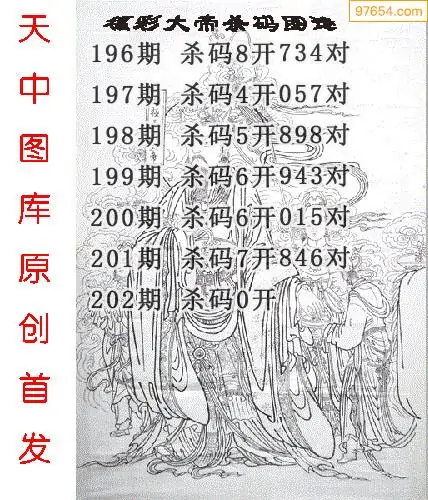 97654.com
福彩大帝杀码图
196期 杀码8开734对
197期 杀码4开057对
198期 杀码5开898对
199期 杀码6开943对
200期 杀码6开015对
201期 杀码7开846对
202期 杀码0开
天中图库原创首发